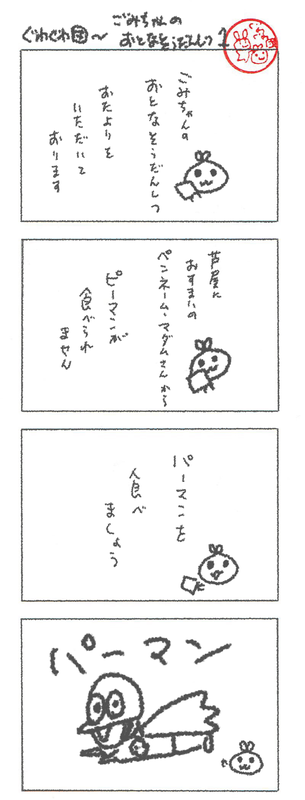 ぐわぐわ団〜
ごみちゃんの
おとなそうだんしつ 1
ごみちゃんの
おとなそうだんしつ
おたよりを
いただいて
おります
芦屋に
おすまいの
ペンネーム・マダムさんから
ピーマンが
食べられ
ません
パーマンを
食べ
ましょう
パーマン